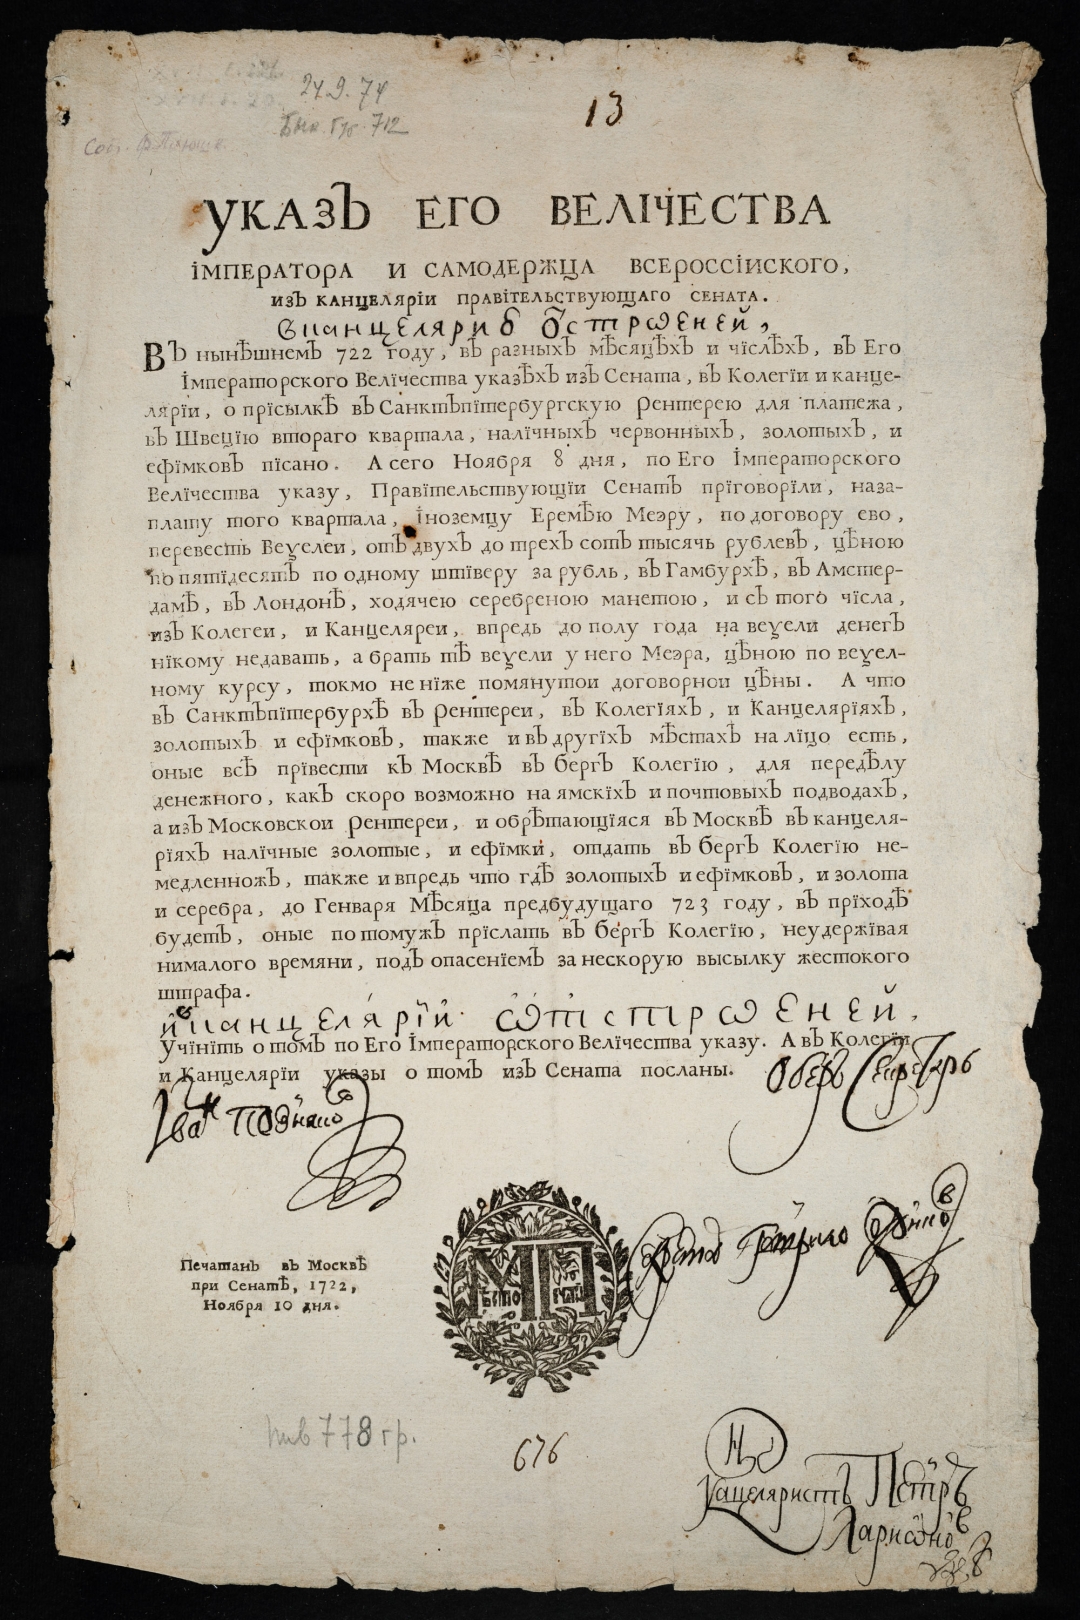 24.9.74
13
712
УКАЗЪ ЕГО ВЕЛІЧЕСТВА
ІМПЕРАТОРА И САМОДЕРЖЦА ВСЕРОССІИСКОГО,
ИЗЪ КАНЦЕЛЯРІИ ПРАВІТЕЛЬСТВУЮЩАГО СЕНАТА.
Въ нынѣшнемъ 722 году, въ разныхъ мѣсяцѣхъ и чїслѣхъ, въ Его
Імператорского Велїчества указѣхъ изъ Сената, въ Колегїи и канце-
лярїи, о прїсылкѣ въ Санктъпїтербургскую Рентерею для платежа,
въ Швецїю втораго квартала, налїчныхъ червонныхъ, золотыхъ, и
ефїмковъ пїсано. А сего Ноября 8 дня, по Его Імператорского
Велїчества указу, Правїтельствующїи Сенатъ прїговорїли, наза-
плату того квартала, їноземцу Еремѣю Меэру, по договору ево,
перевесть Веѯелеи, отъ двухъ до трехъ сотъ тысячь рублевъ, цѣною
по пятїдесятъ по одному штїверу за рубль, въ Гамбурхѣ, въ Амстер-
дамѣ, въ Лондонѣ, ходячею серебреною манетою, и съ того чїсла,
изъ Колегеи, и Канцеляреи, впредь до полу года на веѯели денегъ
нїкому недавать, а брать тѣ веѯели у него Меэра, цѣною по веѯел-
ному курсу, токмо не нїже помянутои договорнои цѣны. А что
въ Санктъпїтербурхѣ въ Рентереи, въ Колегїяхъ, и Канцелярїяхъ,
золотыхъ и ефїмковъ, также и въ другїхъ мѣстахъ на лїцо есть,
оные всѣ прївести къ Москвѣ въ бергъ Колегїю, для передѣлу
денежного, какъ скоро возможно на ямскїхъ и почтовыхъ подводахъ,
а изъ Московскои Рентереи, и обрѣтающїяся въ Москвѣ въ канцеля-
рїяхъ налїчные золотые, и ефїмки, отдать въ бергъ Колегїю не-
медленножъ, также и впредь что гдѣ золотыхъ и ефїмковъ, и золота
и серебра, до Генваря Мѣсяца предбудущаго 723 году, въ прїходѣ
будетъ, оные потомужъ прїслать въ бергъ Колегїю, неудержївая
нималого времяни, подъ опасенїемъ за нескорую высылку жестокого
штрафа.
Учїнїть о томъ по Его Імператорского Велїчества указу. А въ Колегїи
и Канцелярїи указы о томъ изъ Сената посланы. Оберъ Секретарь
Печатанъ въ Москвѣ
при Сенатѣ, 1722,
Ноября 10 дня.
МП
778 гр.
676
Петръ
Ларионовъ